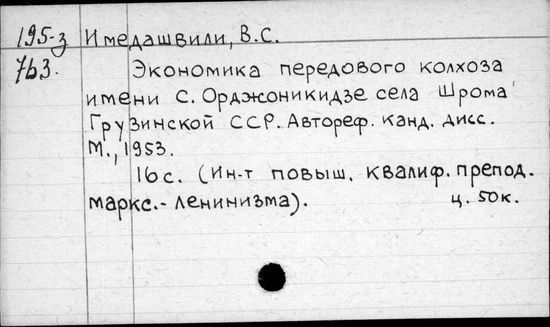 195-з Имедашвили, В.С.
763. Экономика передового колхоза
имени С. Орджоникидзе села Шрома
Грузинской ССР. Автореф. канд. дисс.
М., 1953.
16с. (Ин-т повыш. квалиф. препод.
маркс.-ленинизма). ц. 50к.